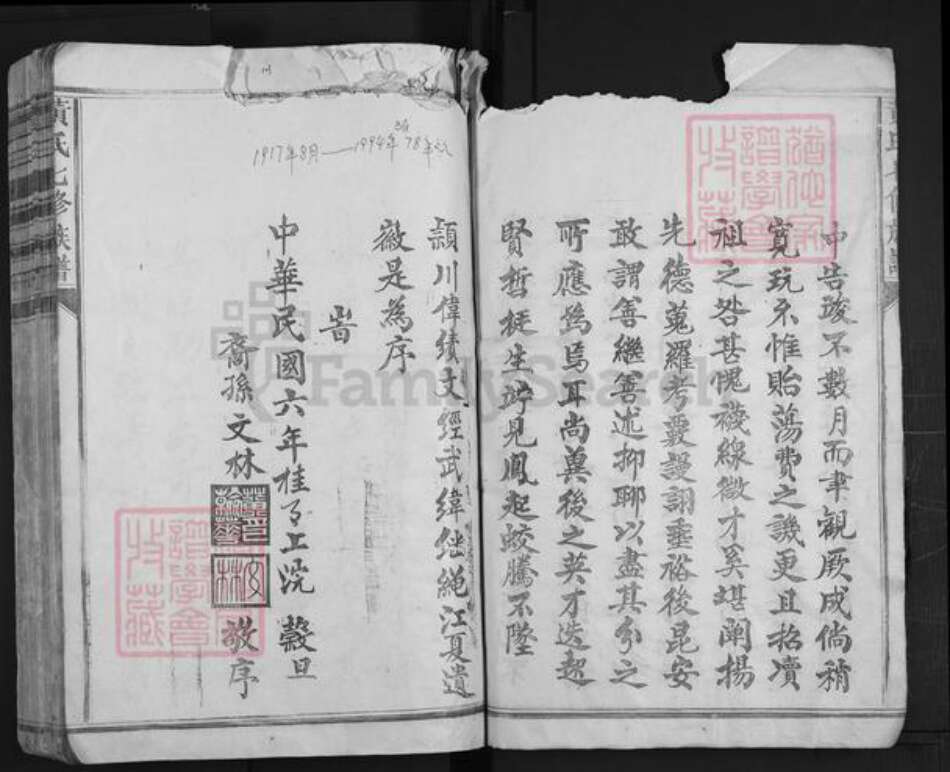 中告竣不數月而聿觀厥成倘稍
寬玩不惟貽蕩費之譏更且招瀆
祖之咎甚愧襪線微才奚堪闡揚
先德蒐羅考覈謾詡垂裕後昆安
敢謂善繼善述抑聊以盡其分之
所應為焉耳尚冀後之英才迭起
賢哲挺生竚見鳳起蛟騰不墜
潁川偉績文經武緯繼繩江夏遺
徽是為序
峕
中華民國六年桂月上浣 穀旦
裔孫文林 敬序
1917年8月——1994年 78年
黃氏七修族譜
譜學會
收藏
譜學會
收藏
FamilySearch